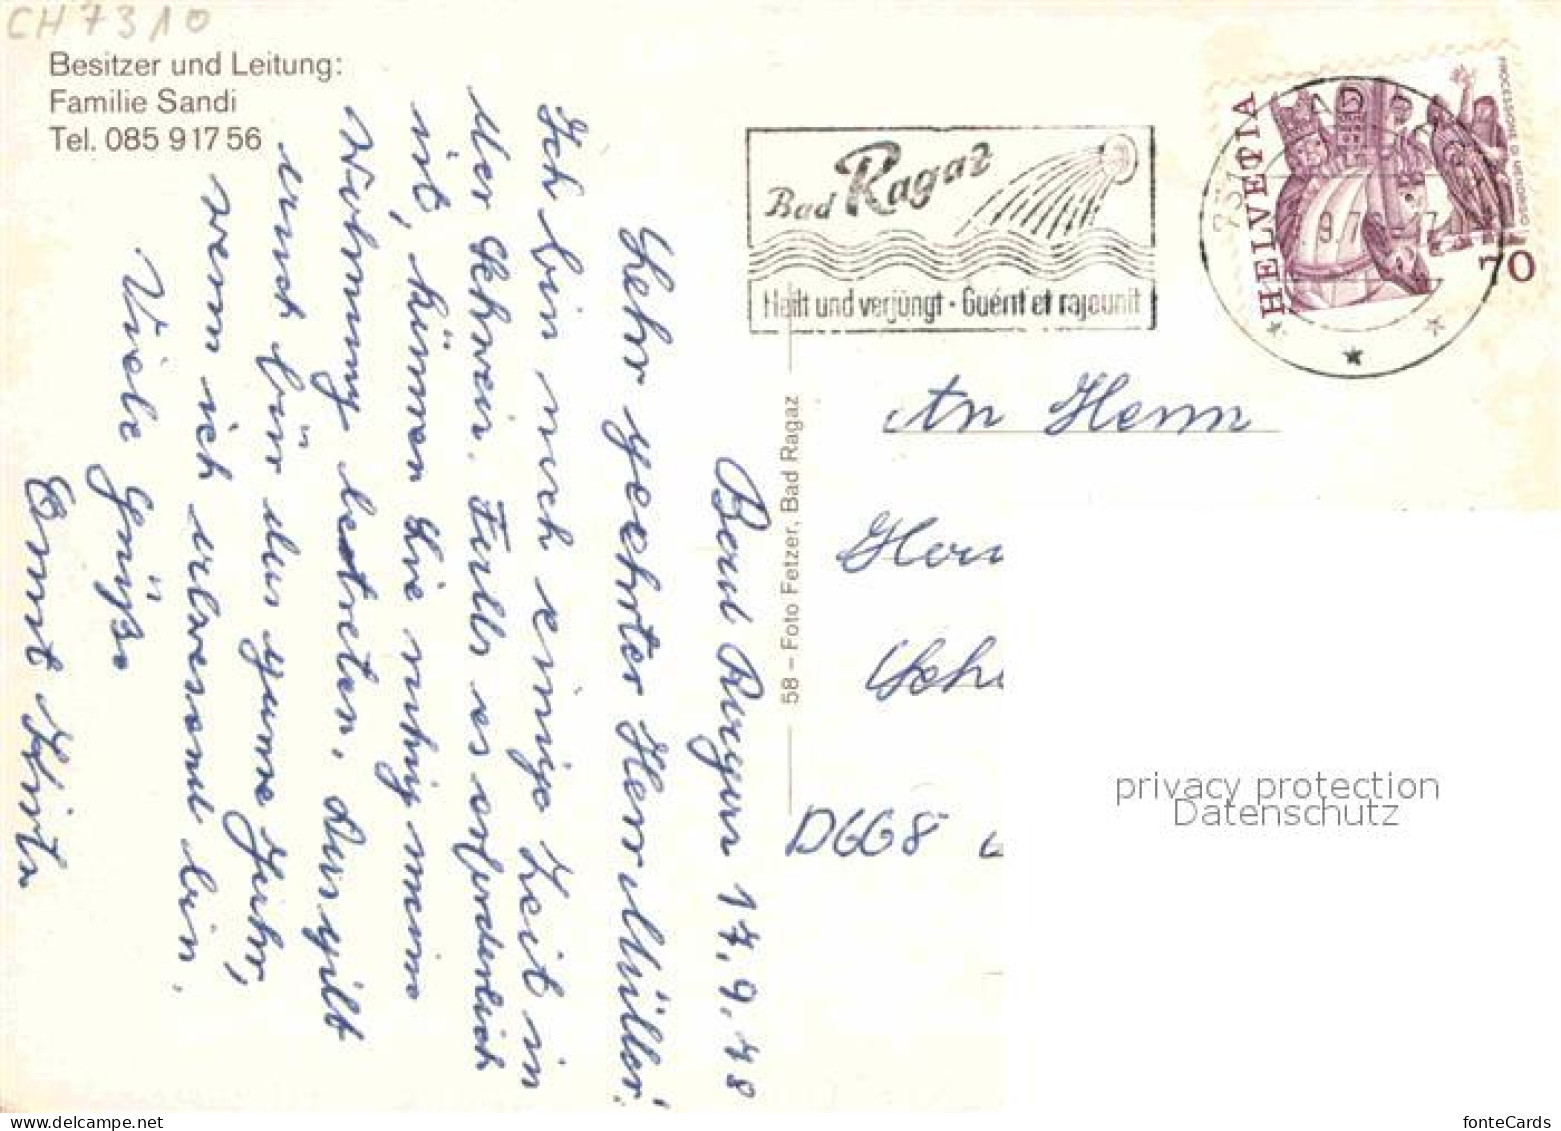 CH7310
Besitzer und Leitung:
Familie Sandi
Tel. 085 9 17 56
Bad Ragaz
Heilt und verjüngt · Guérit et rajeunit
HELVETIA
70
58 – Foto Fetzer, Bad Ragaz
Bad Ragaz 17.9.78
Sehr geehrter Herr Müller!
Ich bin noch einige Zeit in
der Schweiz. Falls es erforderlich
ist, können Sie ruhig meine
Wohnung betreten. Das gilt
auch für das ganze Jahr,
wenn ich abwesend bin.
Viele Grüße
Ernst
An Herrn
D668
privacy protection
Datenschutz
delcampe.net
fonteCards